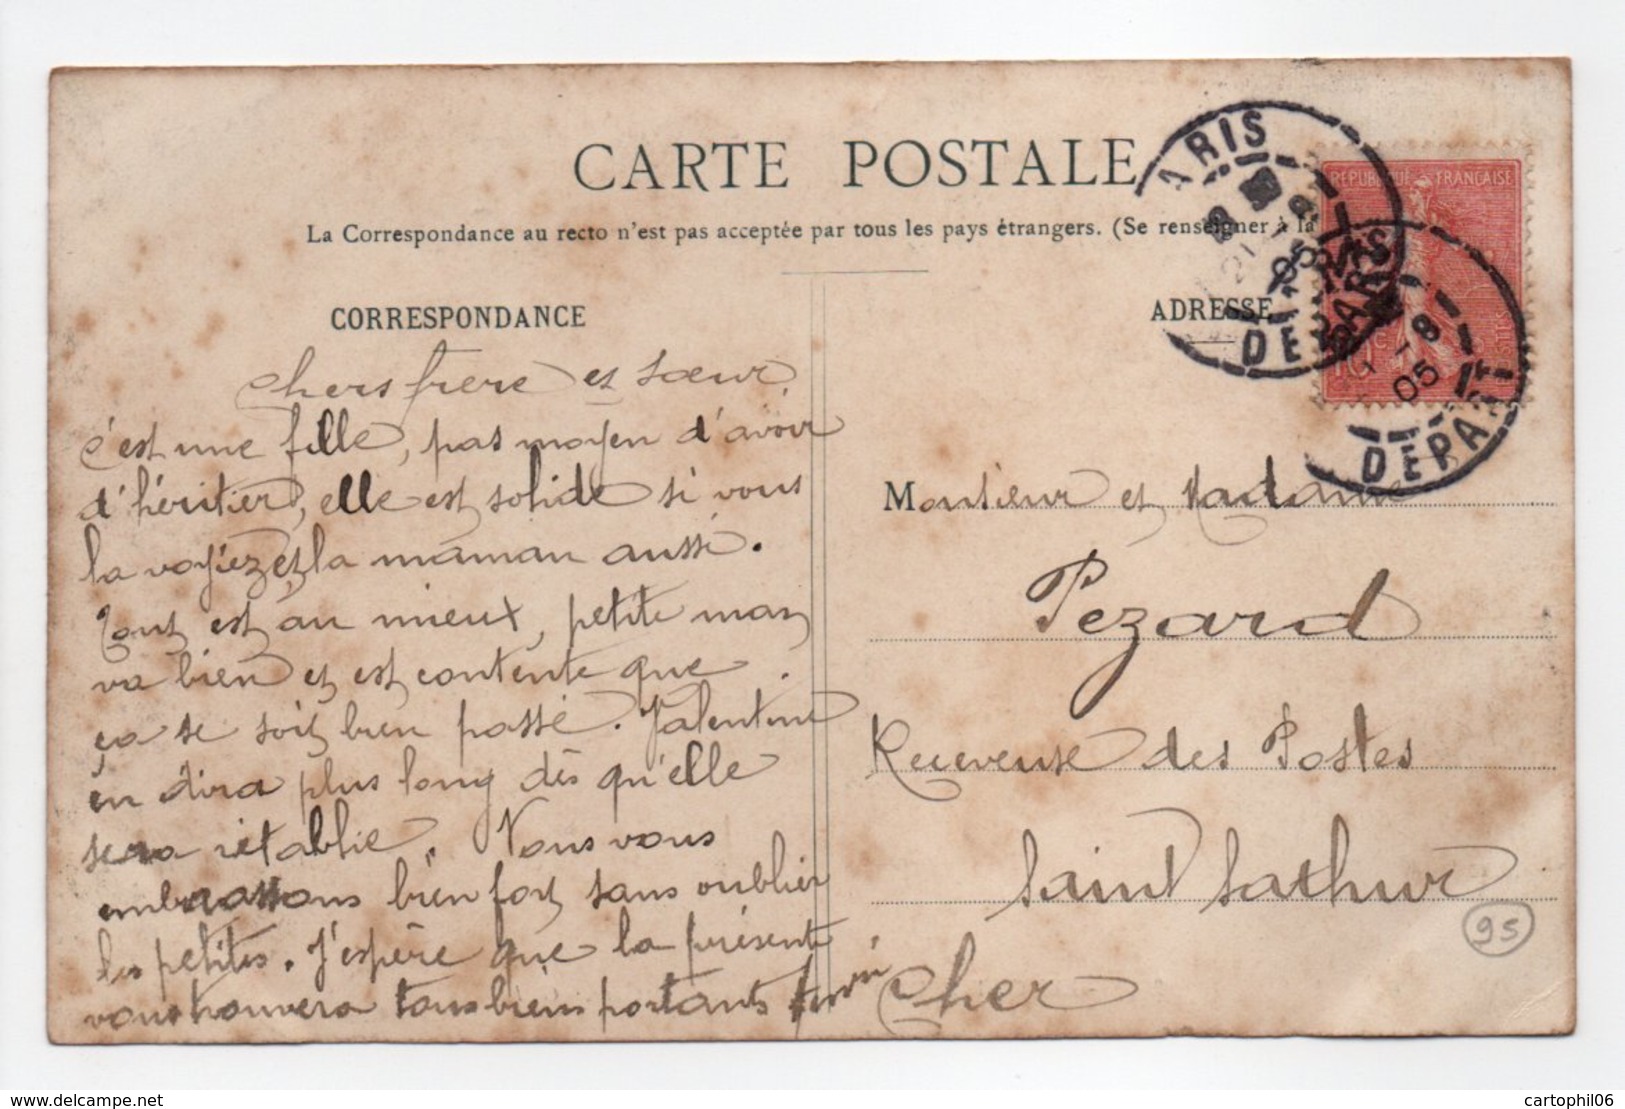 CARTE POSTALE
La Correspondance au recto n'est pas acceptée par tous les pays étrangers. (Se renseigner à la
CORRESPONDANCE
Chers frère et sœur
c'est une fille, pas moyen d'avoir
d'héritier, elle est solide si vous
la voyiez et la maman aussi.
Tout est au mieux, petite man
va bien et est contente que
ça se soit bien passé. Valentine
en dira plus long dès qu'elle
sera rétablie. Nous vous
embrassons bien fort sans oublier
les petites. J'espère que la présente
vous trouvera tous bien portants
ADRESSE
PARIS
DEPART
05
RÉPUBLIQUE FRANÇAISE
10
PARIS
8
05
DEPART
Monsieur et Madame
Pezard
Receveuse des Postes
Saint Sathur
Cher
95
delcampe.net
cartophil06